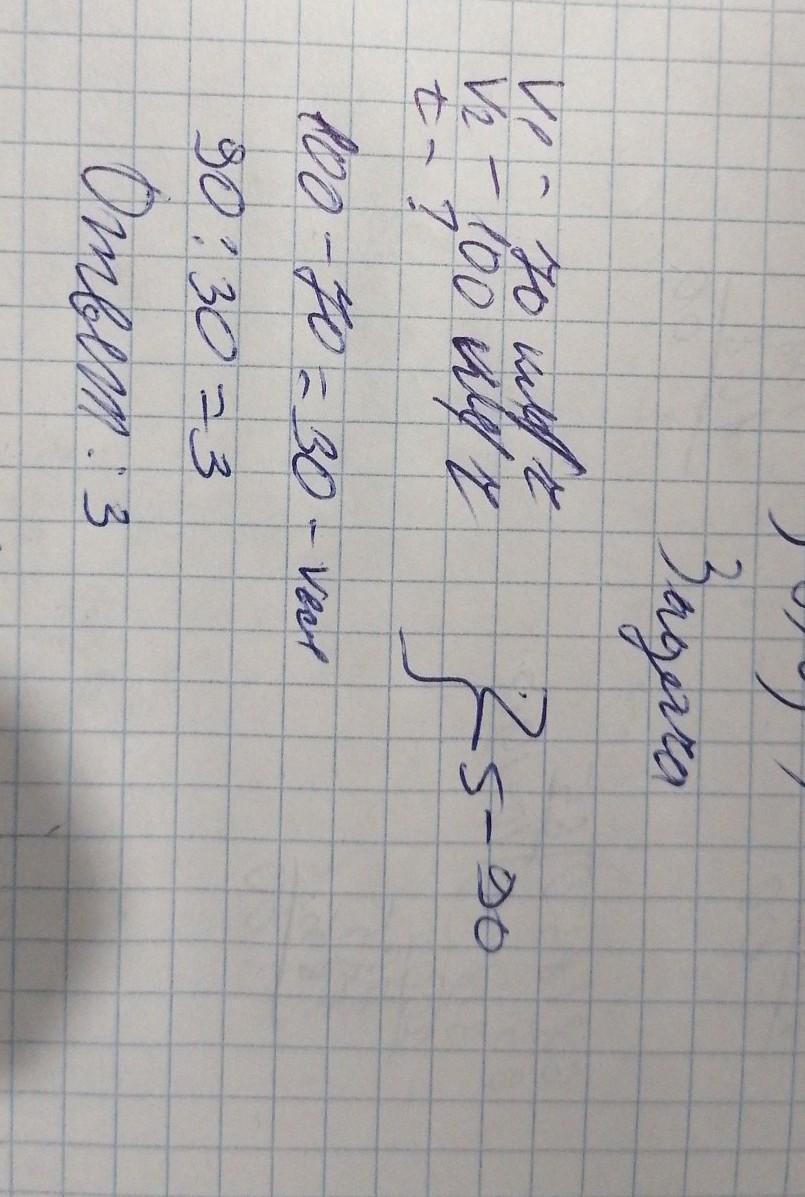 Задача
V1 - 70 км/ч
V2 - 100 км/ч
t - ?
} S - 90
100 - 70 = 30 -
90 : 30 = 3
Ответ : 3